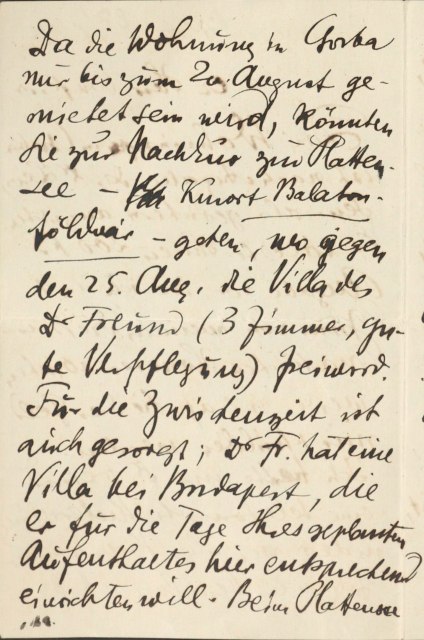 Da die Wohnung in Csorba
nur bis zum 20. August ge-
mietet sein wird, könnten
Sie zur Nachkur zum Platten-
see – Kurort Balaton-
földvár – gehen, wo gegen
den 25. Aug. die Villa des
Dr Freund (3 Zimmer, gu-
te Verpflegung) frei wird.
Für die Zwischenzeit ist
auch gesorgt; Dr Fr. hat eine
Villa bei Budapest, die
er für die Tage Ihres geplanten
Aufenthaltes hier entsprechend
einrichten will. – Beim Plattensee